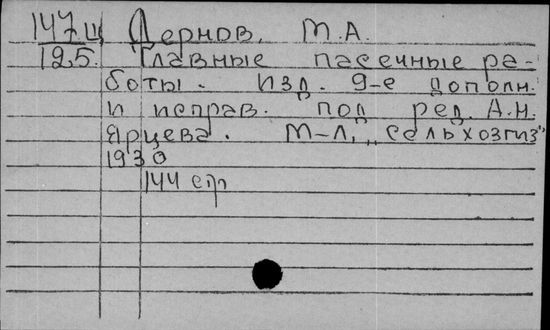 147 Щ Дернов, М.А.
125. Главные пасечные ра-
боты. Изд. 9-е дополн.
и исправ. под ред. А.Н.
Ярцева. М-Л, „Сельхозгиз"
1930
144 стр